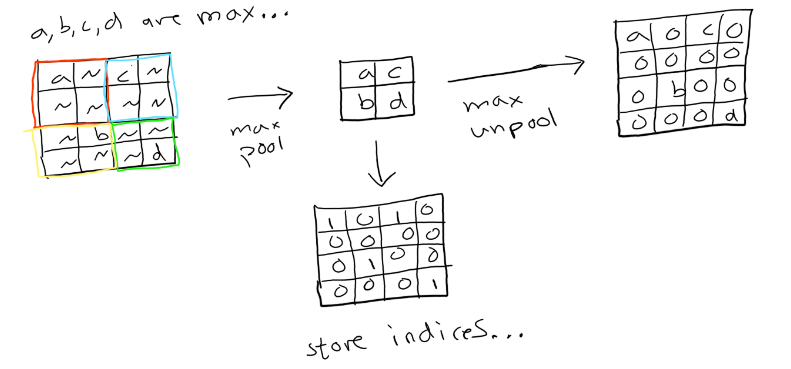 a,b,c,d are max...
a ~ c ~
~ ~ ~ ~
~ b ~ ~
~ ~ ~ d
max
pool
a c
b d
max
unpool
a 0 c 0
0 0 0 0
0 b 0 0
0 0 0 d
1 0 1 0
0 0 0 0
0 1 0 0
0 0 0 1
store indices...